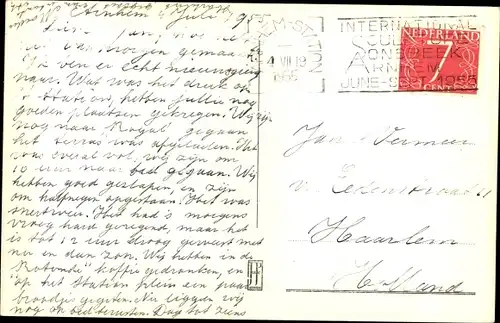 Arnhem 4 Juli 1955
ben er echt nieuwsgierig
naar. Wat was het druk op
't Station, hebben jullie nog
goeden plaatsen gekregen. Wij zijn
nog naar Royal gegaan
het terras was afgeladen. Het
was overal vol, wij zijn om
10 uur naar bed gegaan. Wij
hebben goed geslapen, en zijn
om half negen opgestaan. Het was
weer. Het had 's morgens
vroeg hard geregend, maar het
is tot 12 uur droog geweest met
nu en dan zon. Wij hebben in de
"Rotonde" koffie gedronken, en
op het Station plein een paar
broodjes gegeten. Nu liggen wij
nog op bed te rusten. Dag tot ziens
STATION
4 VII 19
1955
INTERNATIONAL
SONSBEEK
ARNHEM
JUNE-SEPT. 1955
NEDERLAND
7
CENT
Jan Vermeer
Haarlem
Holland